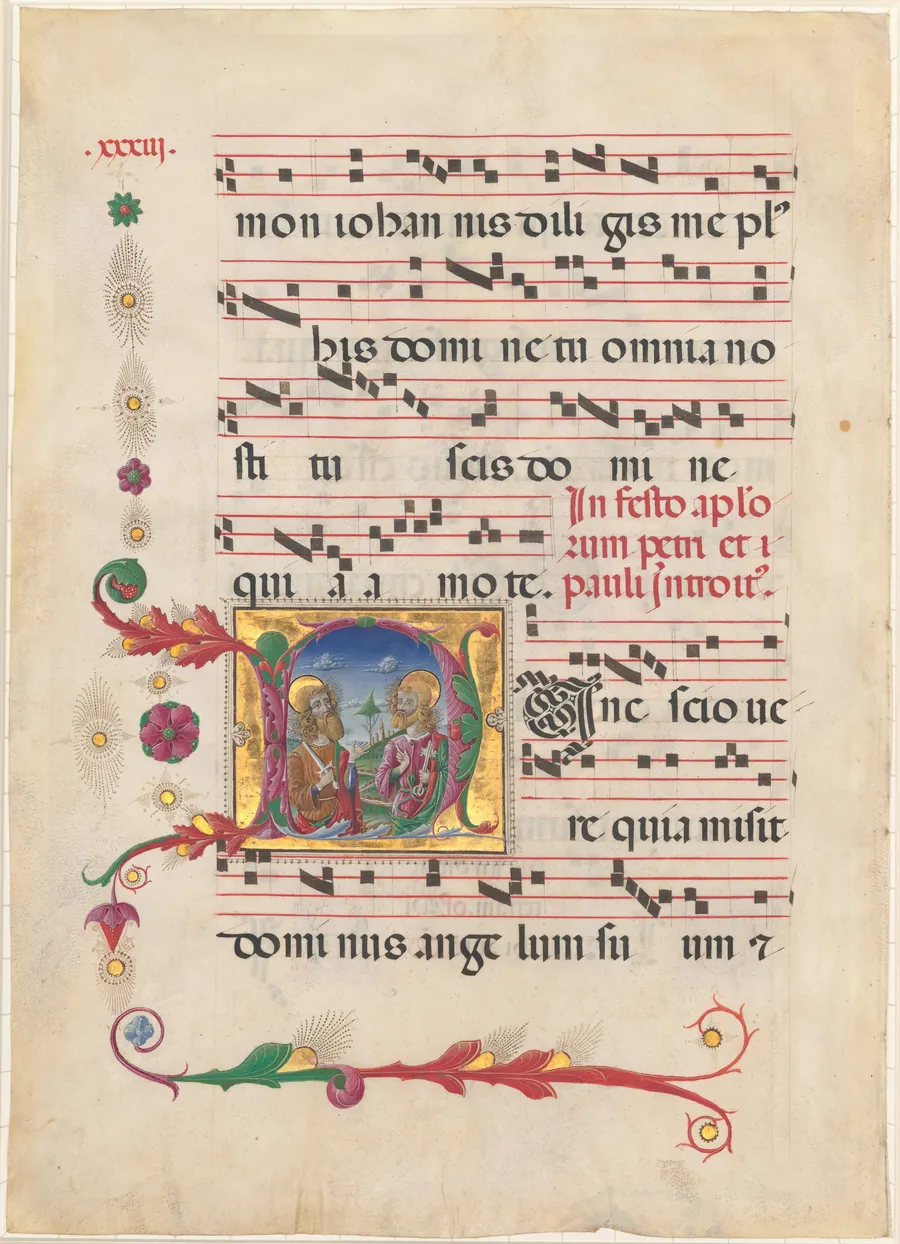 .xxxiij.
mon iohan nis dili gis me pl᾽
his domi ne tu omnia no
sti tu scis do mi ne
qui a a mo te.
In festo aplo
rum petri et
pauli Introit᾽.
Nnc scio ue
re quia misit
domi nus ange lum su um ⁊